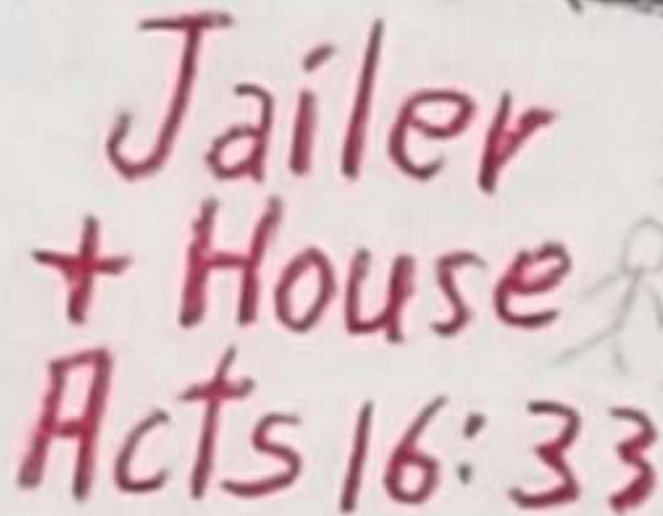 Jailer
+ House
Acts 16:33